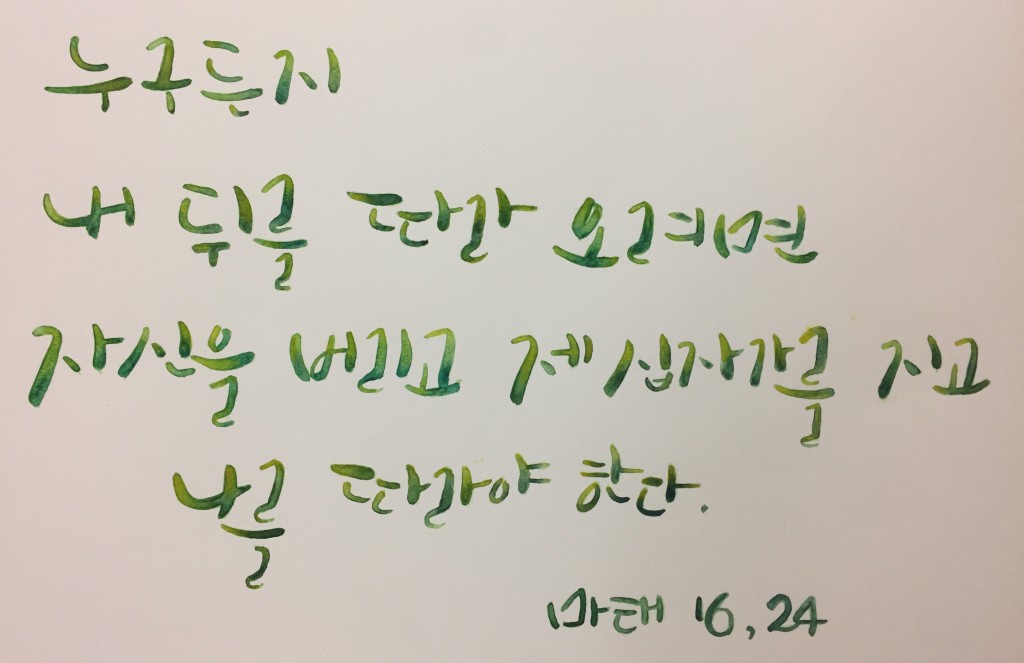 누구든지
내 뒤를 따라 오려면
자신을 버리고 제십자가를 지고
나를 따라야 한다.
마태 16,24